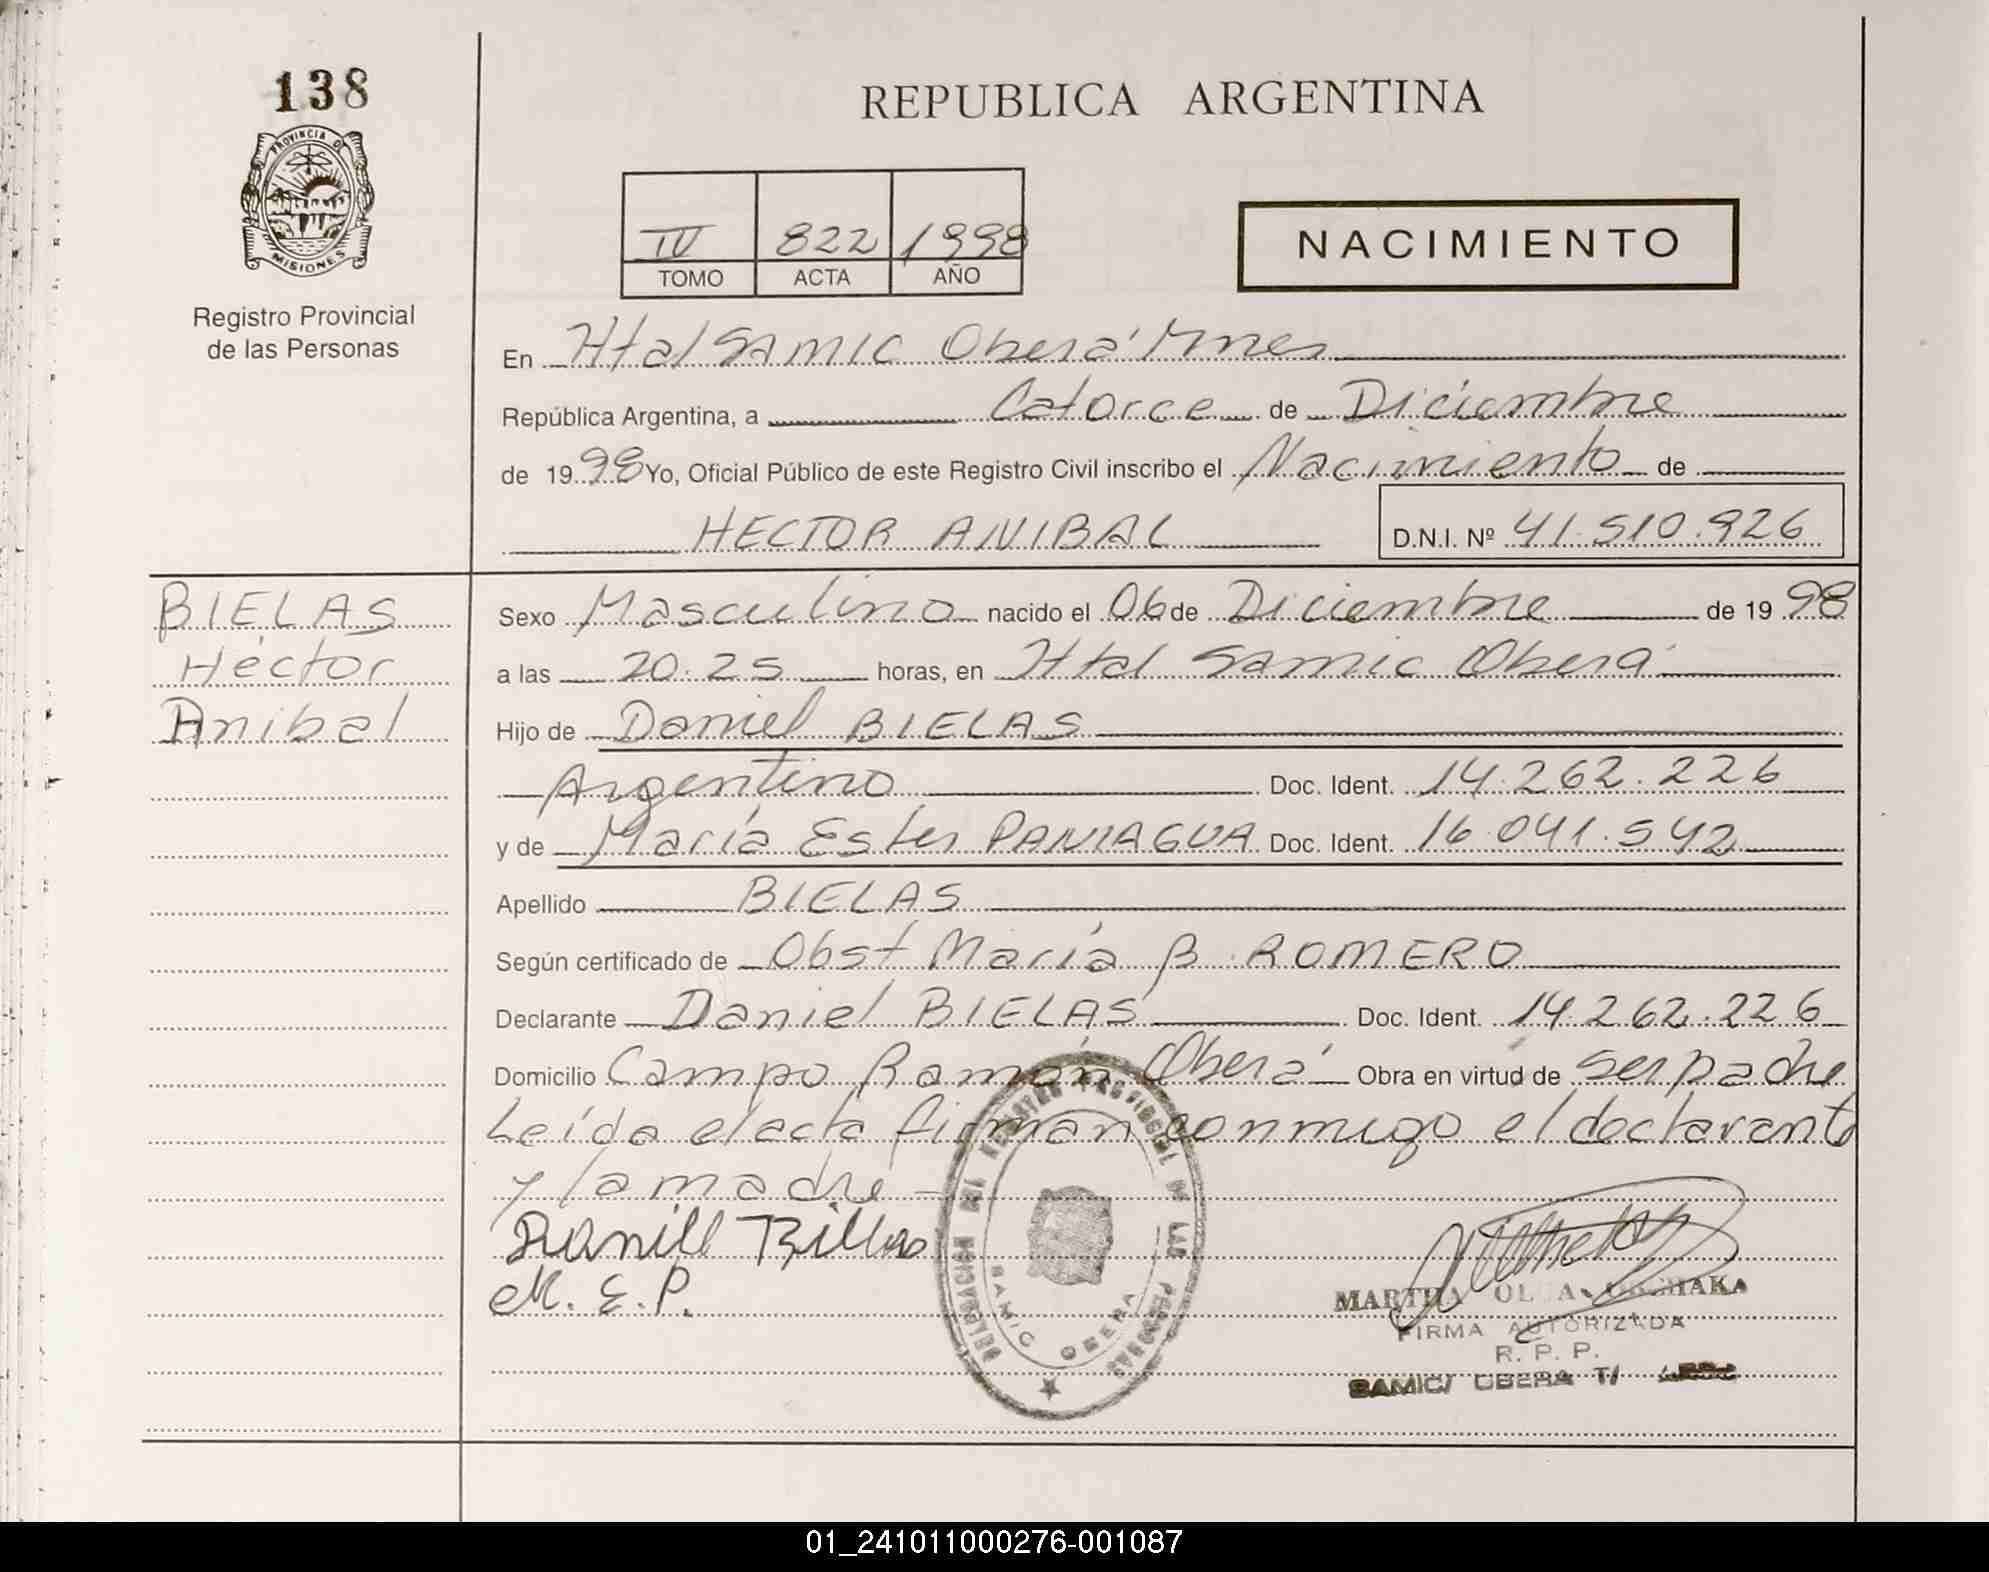 138
PROVINCIA DE
MISIONES
Registro Provincial
de las Personas
REPUBLICA ARGENTINA
IV 822 1998
TOMO ACTA AÑO
NACIMIENTO
En Htal SAMIC Oberá Mnes
República Argentina, a Catorce de Diciembre
de 1998 Yo, Oficial Público de este Registro Civil inscribo el Nacimiento de
HECTOR ANIBAL D.N.I. Nº 41.510.926
BIELAS
Héctor
Anibal
Sexo Masculino nacido el 06 de Diciembre de 1998
a las 20.25 horas, en Htal Samic Oberá
Hijo de Daniel BIELAS
Argentino Doc. Ident. 14.262.226
y de María Ester PANIAGUA Doc. Ident. 16.041.542
Apellido BIELAS
Según certificado de Obst María B. ROMERO
Declarante Daniel BIELAS Doc. Ident. 14.262.226
Domicilio Campo Ramón Oberá Obra en virtud de ser padre
Leída el acta firman conmigo el declarante
y la madre
M. E. P.
DELEGACION DEL REGISTRO PROVINCIAL DE LAS PERSONAS
SAMIC OBERA
MARTHA OLGA
FIRMA AUTORIZADA
R. P. P.
SAMIC/ OBERA T/
01_241011000276-001087